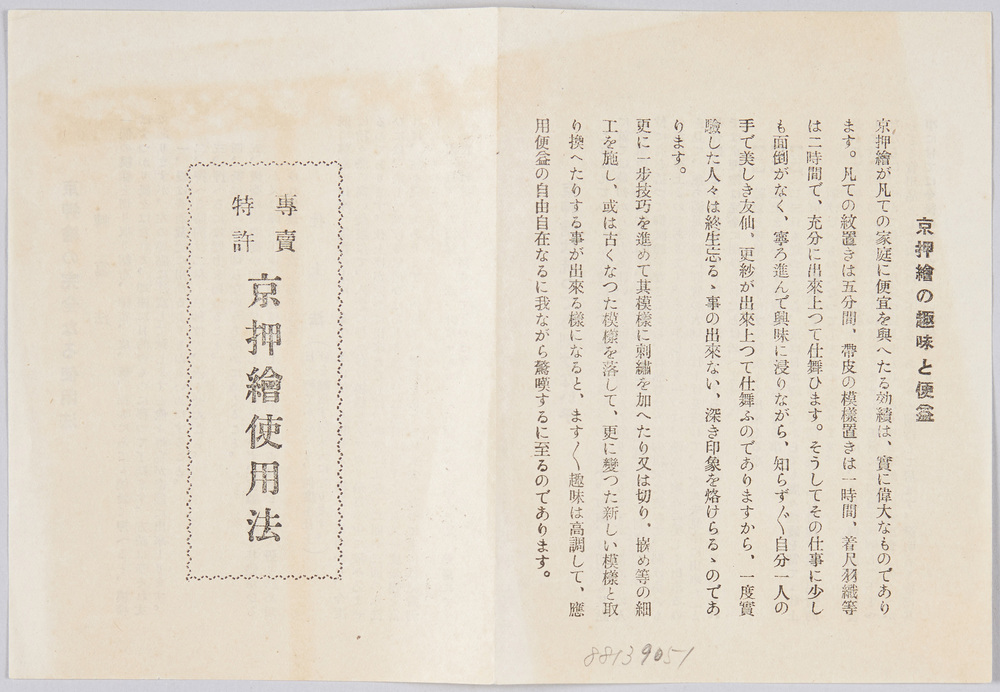 京押繪の趣味と便益
京押繪が凡ての家庭に便宜を與へたる効績は、實に偉大なものであり
ます。凡ての紋置きは五分間、帶皮の模樣置きは一時間、着尺羽織等
は二時間で、充分に出來上つて仕舞ひます。そうしてその仕事に少し
も面倒がなく、寧ろ進んで興味に浸りながら、知らず〴〵自分一人の
手で美しき友仙、更紗が出來上つて仕舞ふのでありますから、一度實
驗した人々は終生忘るゝ事の出來ない、深き印象を烙けらるゝのであ
ります。
更に一步技巧を進めて其模樣に刺繡を加へたり又は切り、嵌め等の細
工を施し、或は古くなつた模樣を落して、更に變つた新しい模樣と取
り換へたりする事が出來る樣になると、ます〱趣味は高調して、應
用便益の自由自在なるに我ながら驚嘆するに至るのであります。
專賣
特許
京押繪使用法
88139051